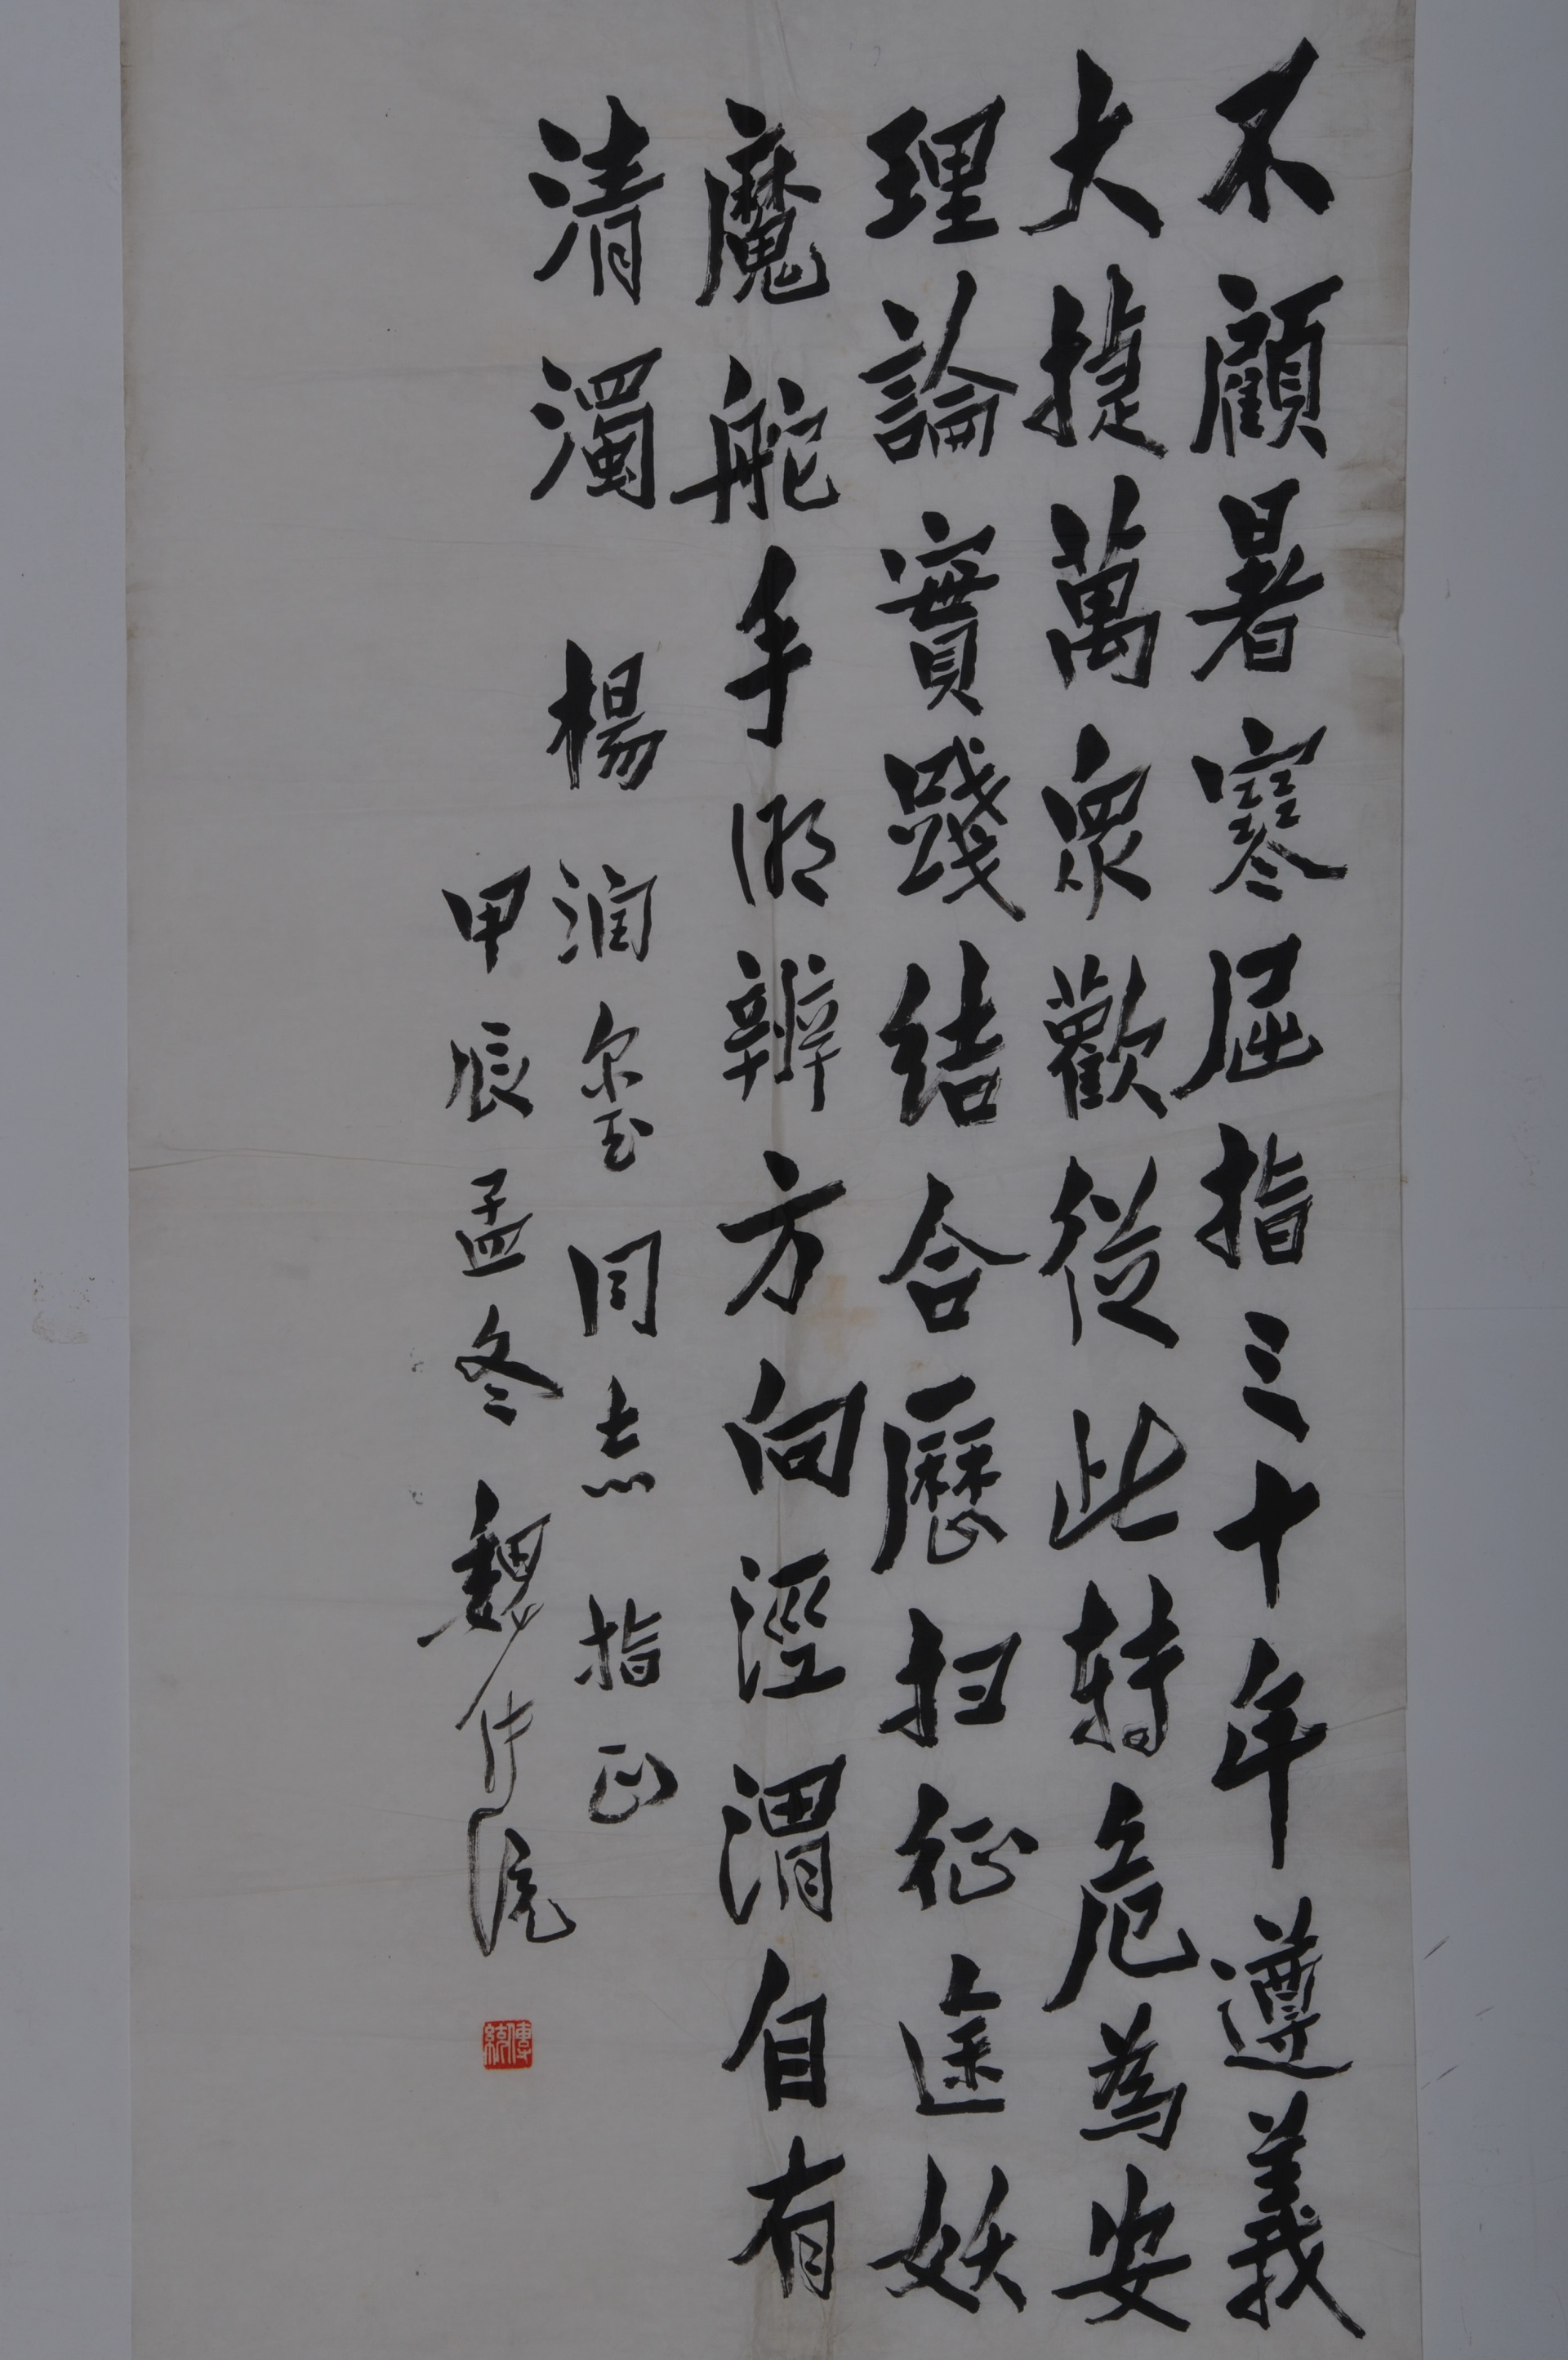 不顧暑寒屈指三十年遵義
大捷萬眾歡從此轉危為安
理論實踐結合歷扫征途妖
魔舵手明辨方向涇渭自有
清濁 楊润玺同志指正
甲辰孟冬魏传统
傳統